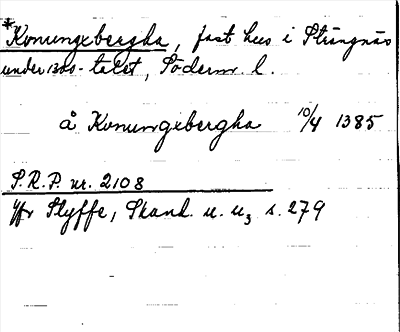 *Konungxbergha, fast hus i Strängnäs
under 1300-talet, Söderm. l.
å Konungxbergha 10/4 1385
S.R.P. nr. 2108
Jfr Styffe, Skand. u. u3 s. 279